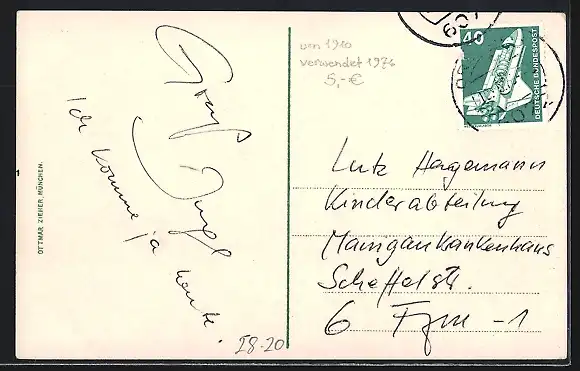 Gruß
Ich komme ja heute.
OTTMAR ZIEHER, MÜNCHEN.
1
58-20
um 1910
verwendet 1976
5,-€
40
DEUTSCHE BUNDESPOST
Lutz Hagemann
Kinderabteilung
Maingaukrankenhaus
Scheffelstr.
6 Ffm -1